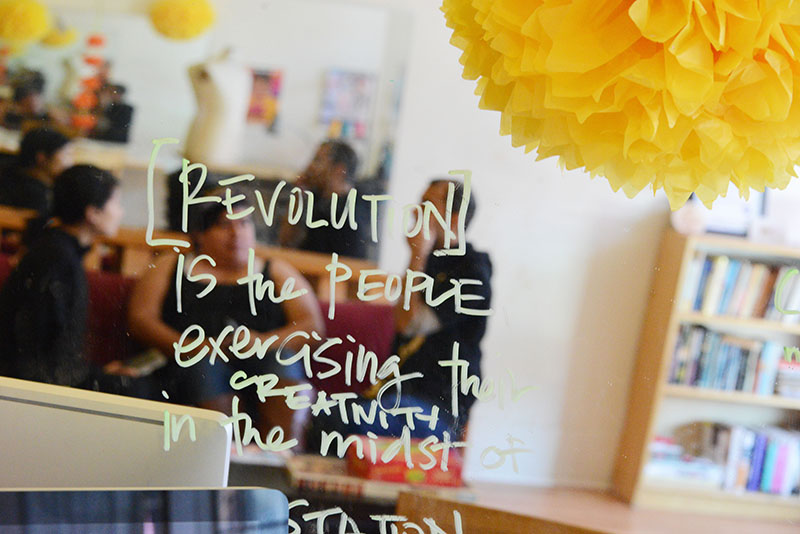 [REVOLUTION]
is the PEOPLE
exercising their
CREATIVITY
in the midst of
STATION